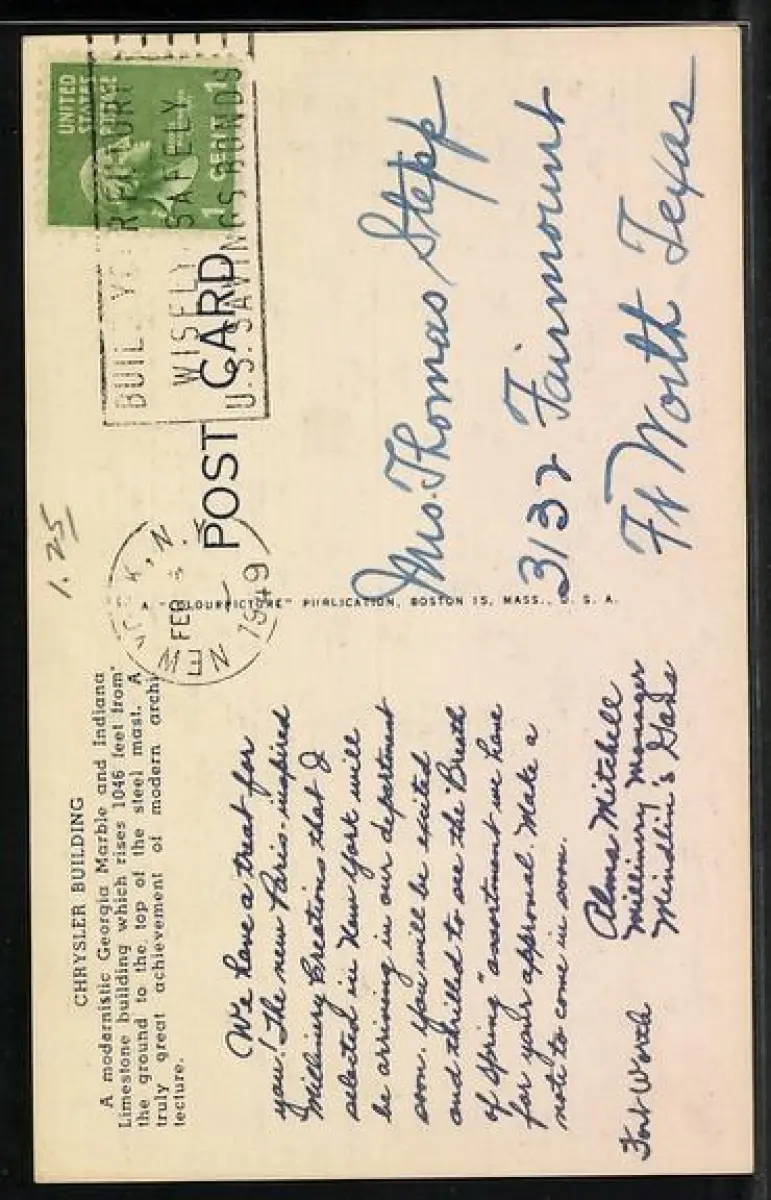 CHRYSLER BUILDING
A modernistic Georgia Marble and Indiana
Limestone building which rises 1046 feet from
the ground to the top of the steel mast. A
truly great achievement of modern archi-
tecture.
We have a treat for
you! The new Paris-inspired
Millinery Creations that I
selected in New York will
be arriving in our department
soon. You will be excited
and thrilled to see the "Breath
of Spring" assortment we have
for your approval. Make a
note to come in soon.
Alma Mitchell
Millinery Manager
Fort Worth
A "COLOURPICTURE" PUBLICATION, BOSTON 15, MASS., U. S. A.
1.25
NEW YORK, N.Y.
FEB
1949
POST CARD
UNITED
STATES
POSTAGE
1 CENT 1
BUILD YOUR FUTURE
WISELY SAFELY
U.S. SAVINGS BONDS
Mrs. Thomas Stepp
3132 Fairmount
Ft Worth Texas